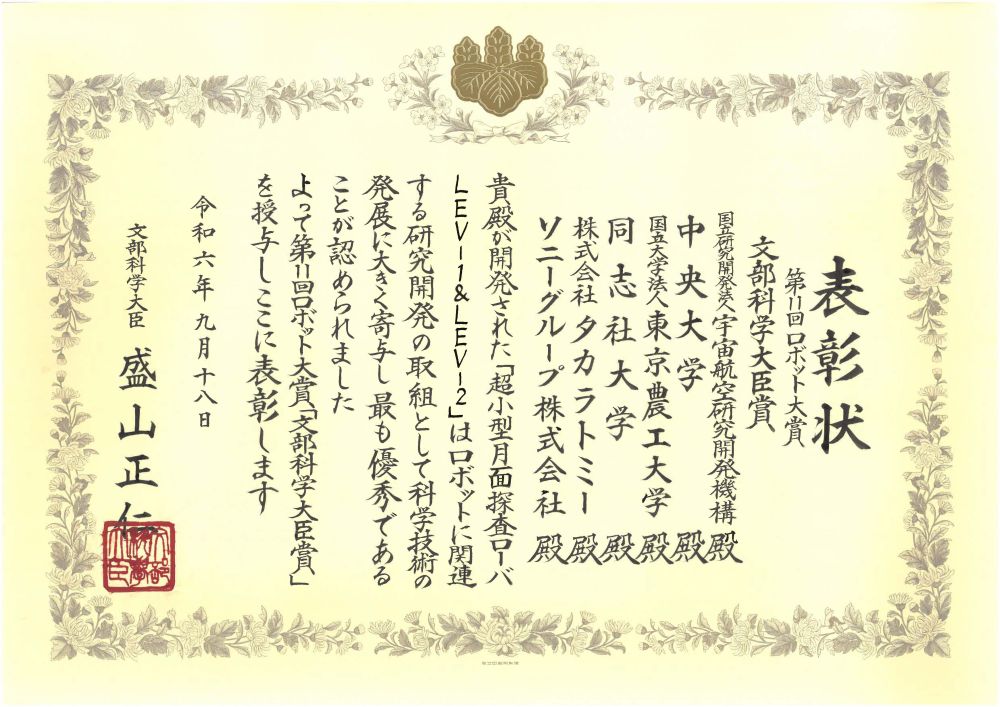 表彰状
第11回ロボット大賞
文部科学大臣賞
国立研究開発法人宇宙航空研究開発機構 殿
中央大学 殿
国立大学法人東京農工大学 殿
同志社大学 殿
株式会社タカラトミー 殿
ソニーグループ株式会社 殿
貴殿が開発された「超小型月面探査ローバ
LEV-1&LEV-2」はロボットに関連
する研究開発の取組として科学技術の
発展に大きく寄与し最も優秀である
ことが認められました
よって第11回ロボット大賞「文部科学大臣賞」
を授与しここに表彰します
令和六年九月十八日
文部科学大臣 盛山正仁
文部科学大臣